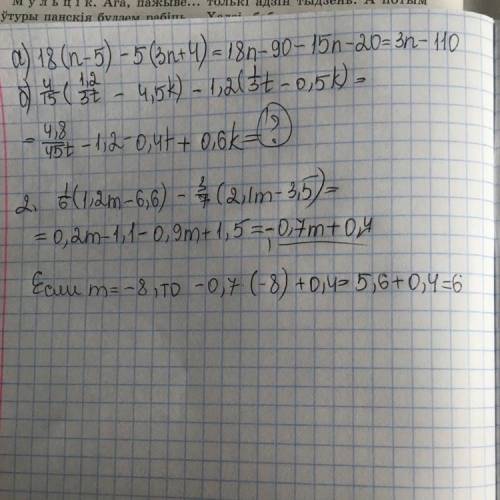 М у л ь ц і к. Ага, пажыве... толькі адзін тыдзень. А потым
а) 18(n-5) - 5(3n+4) = 18n - 90 - 15n - 20 = 3n - 110
б) 4/15 (1,2/3t - 4,5k) - 1,2(1/3t - 0,5k) =
= 4,8/45t - 1,2 - 0,4t + 0,6k = ?
2. 1/6(1,2m - 6,6) - 3/7(2,1m - 3,5) =
= 0,2m - 1,1 - 0,9m + 1,5 = -0,7m + 0,4
Если m = -8, то -0,7 · (-8) + 0,4 = 5,6 + 0,4 = 6